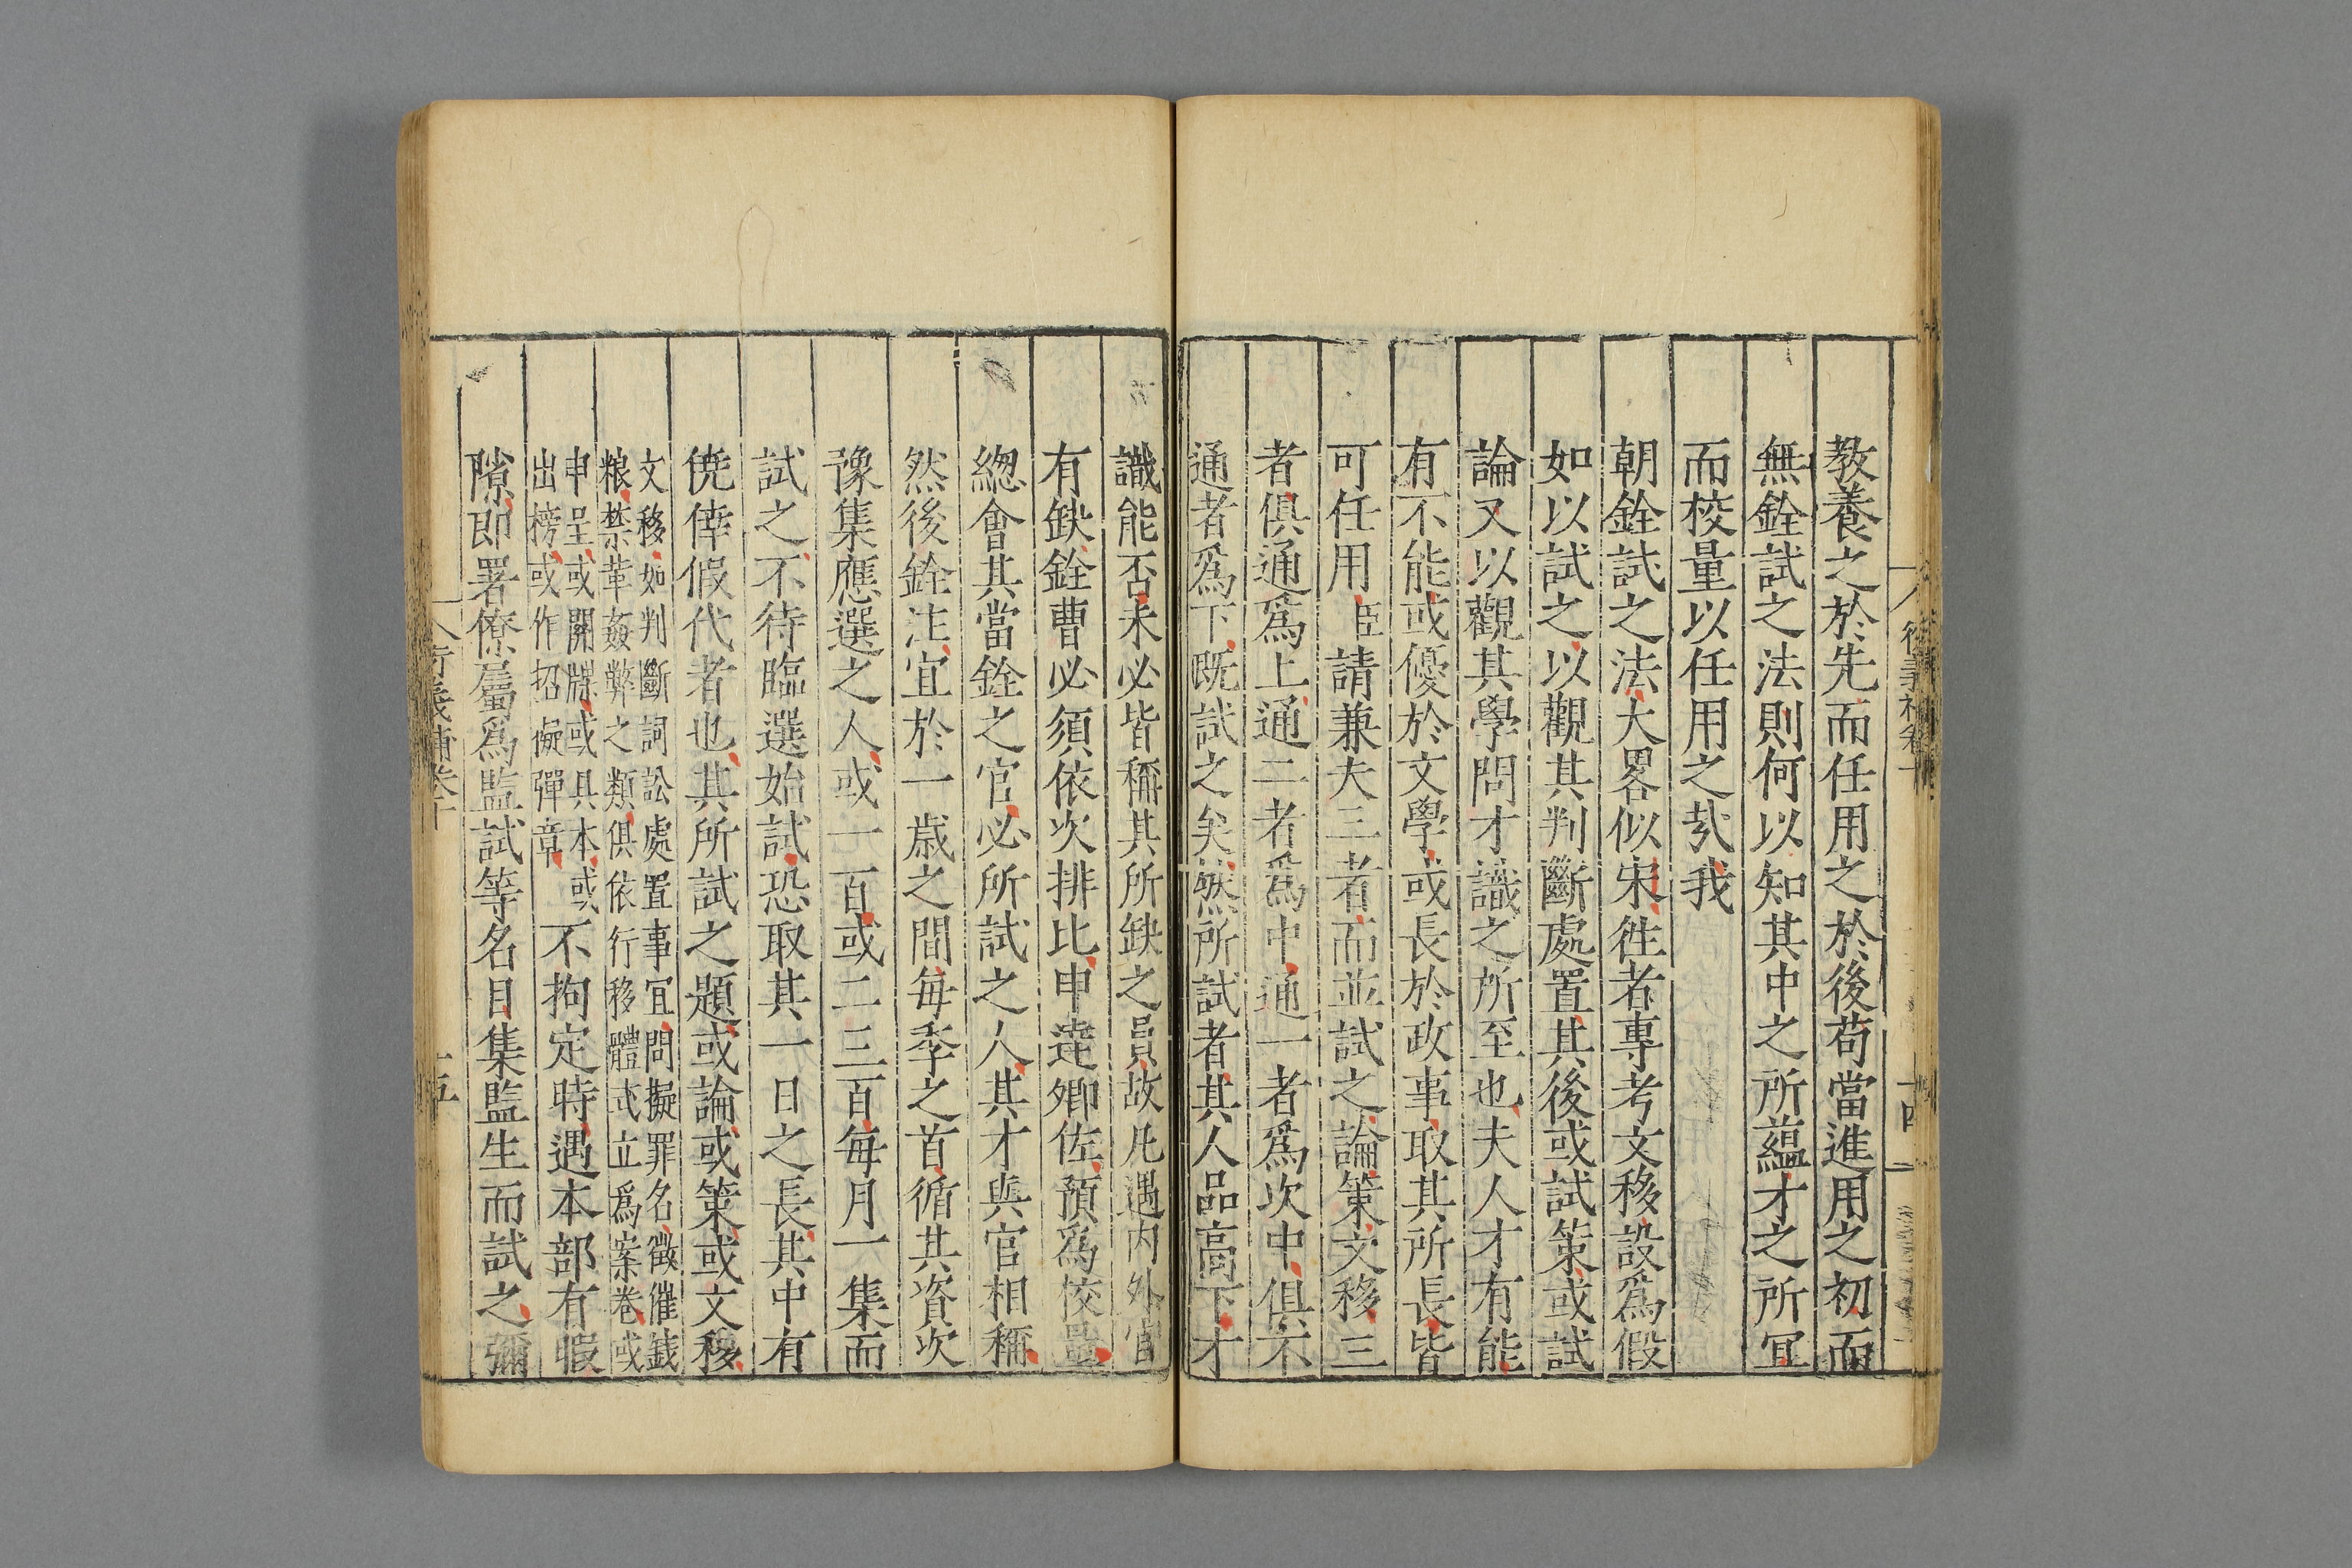 教養之於先而任用之於後苟當進用之初而
無銓試之法則何以知其中之所蘊才之所宜
而校量以任用之㢤我
朝銓試之法大畧似宋徃者專考文移設爲假
如以試之以觀其判斷處置其後或試策或試
論又以觀其學問才識之所至也夫人才有能
有不能或優於文學或長於政事取其所長皆
可任用臣請兼夫三者而並試之論策文移三
者俱通爲上通二者爲中通一者爲次中俱不
通者爲下既試之矣然所試者其人品高下才
識能否未必皆稱其所缺之員故凡遇内外官
有缺銓曹必須依次排比申達卿佐預爲校量
總會其當銓之官必所試之人其才與官相稱
然後銓注宜於一歲之間每季之首循其資次
豫集應選之人或一百或二三百每月一集而
試之不待臨選始試恐取其一日之長其中有
僥倖假代者也其所試之題或論或策或文移
文移如判斷詞訟處置事宜問擬罪名徵催錢
粮禁革姦弊之類俱依行移體式立爲案卷或
申呈或關牒或具本或
出榜或作招儗彈章
不拘定時遇本部有暇
隙即署僚屬爲監試等名目集監生而試之彌
十四
五